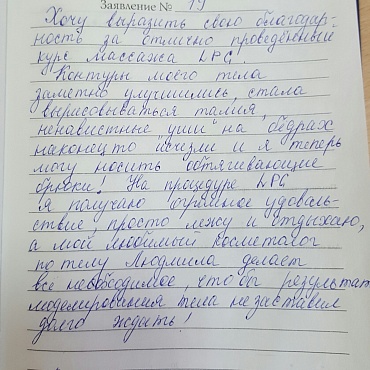 Заявление № 19
Хочу выразить свою благодар-
ность за отлично проведённый
курс массажа LPG.
Контуры моего тела
заметно улучшились, стала
вырисовываться талия,
ненавистные "уши" на бёдрах
наконец то исчезли и я теперь
могу носить обтягивающие
брюки! На процедуре LPG
я получаю огромное удоволь-
ствие, просто лежу и отдыхаю,
а мой любимый косметолог
по телу Людмила делает
все необходимое, что бы результат
моделирования тела не заставил
долго ждать!